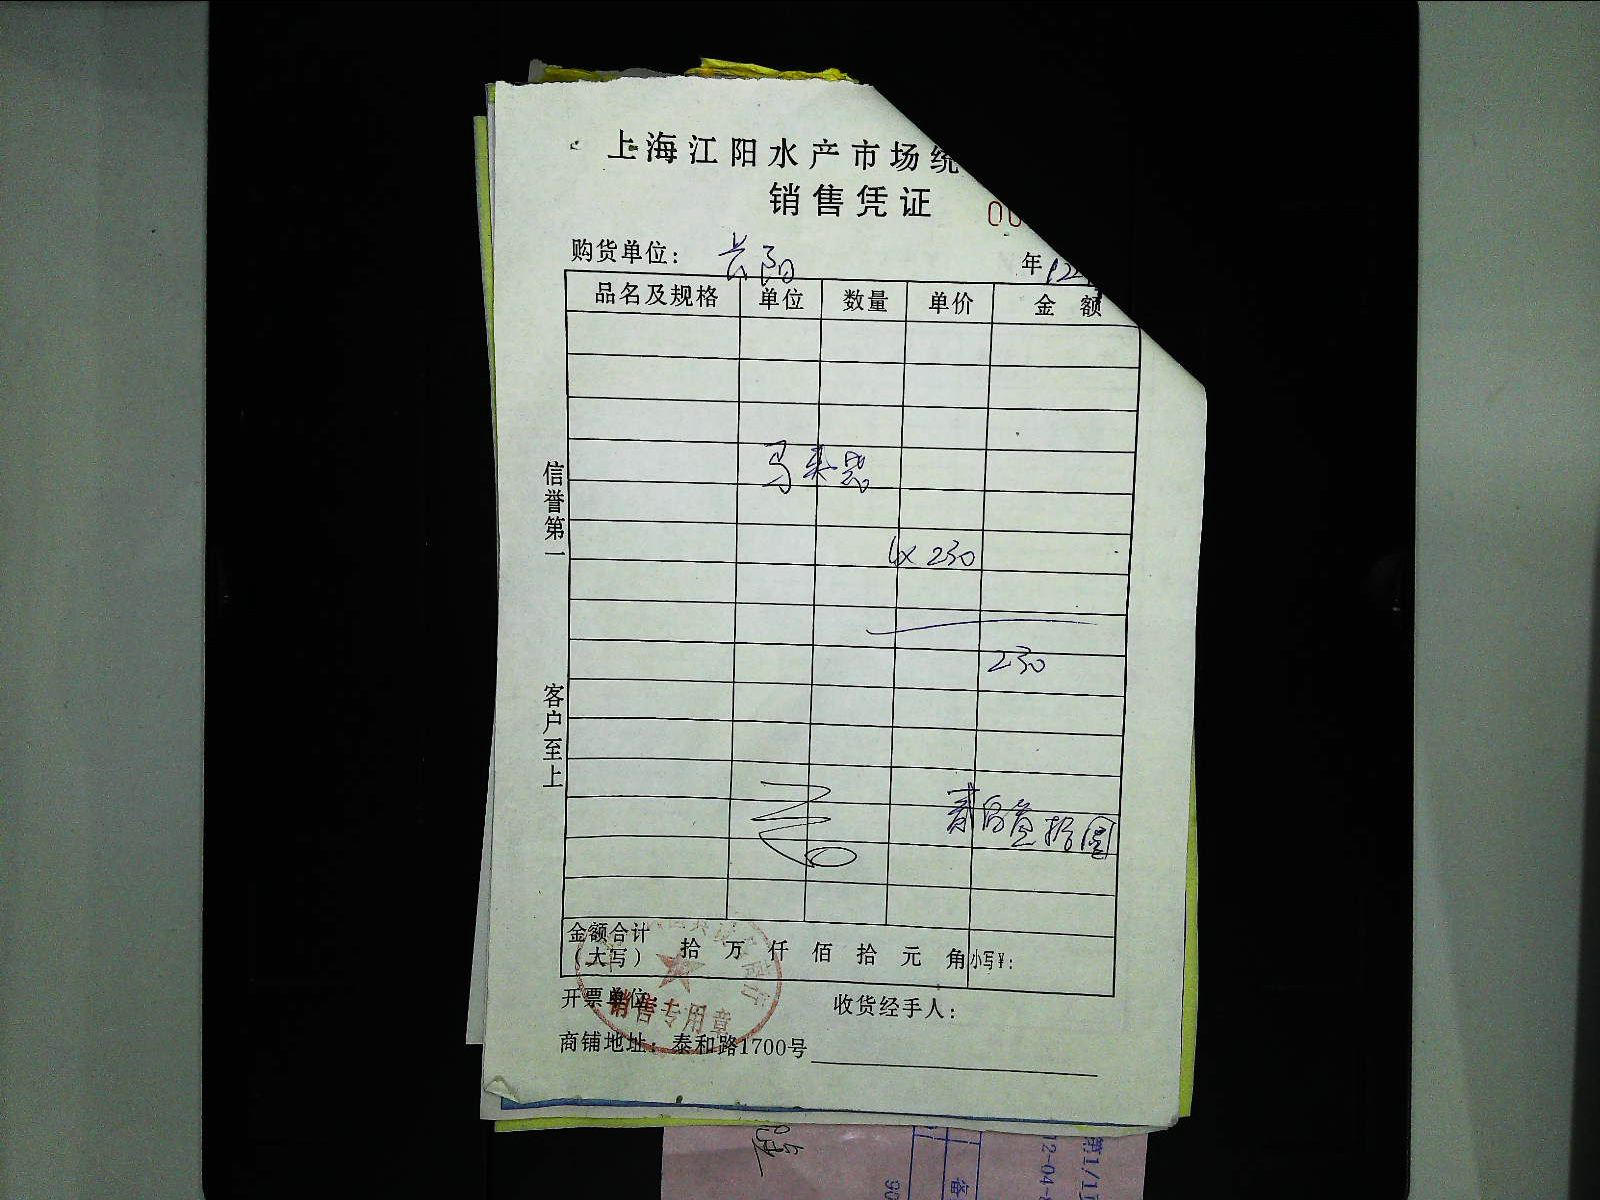 上海江阳水产市场统
销售凭证
00
购货单位: 长阳
年12
品名及规格 单位 数量 单价 金额
马夹袋
230
230
贰佰叁拾圆
信誉第一
客户至上
金额合计(大写) 拾 万 仟 佰 拾 元 角 小写¥:
销售专用章
开票单位:
收货经手人:
商铺地址: 泰和路1700号
第1/1
12-04-
备
90